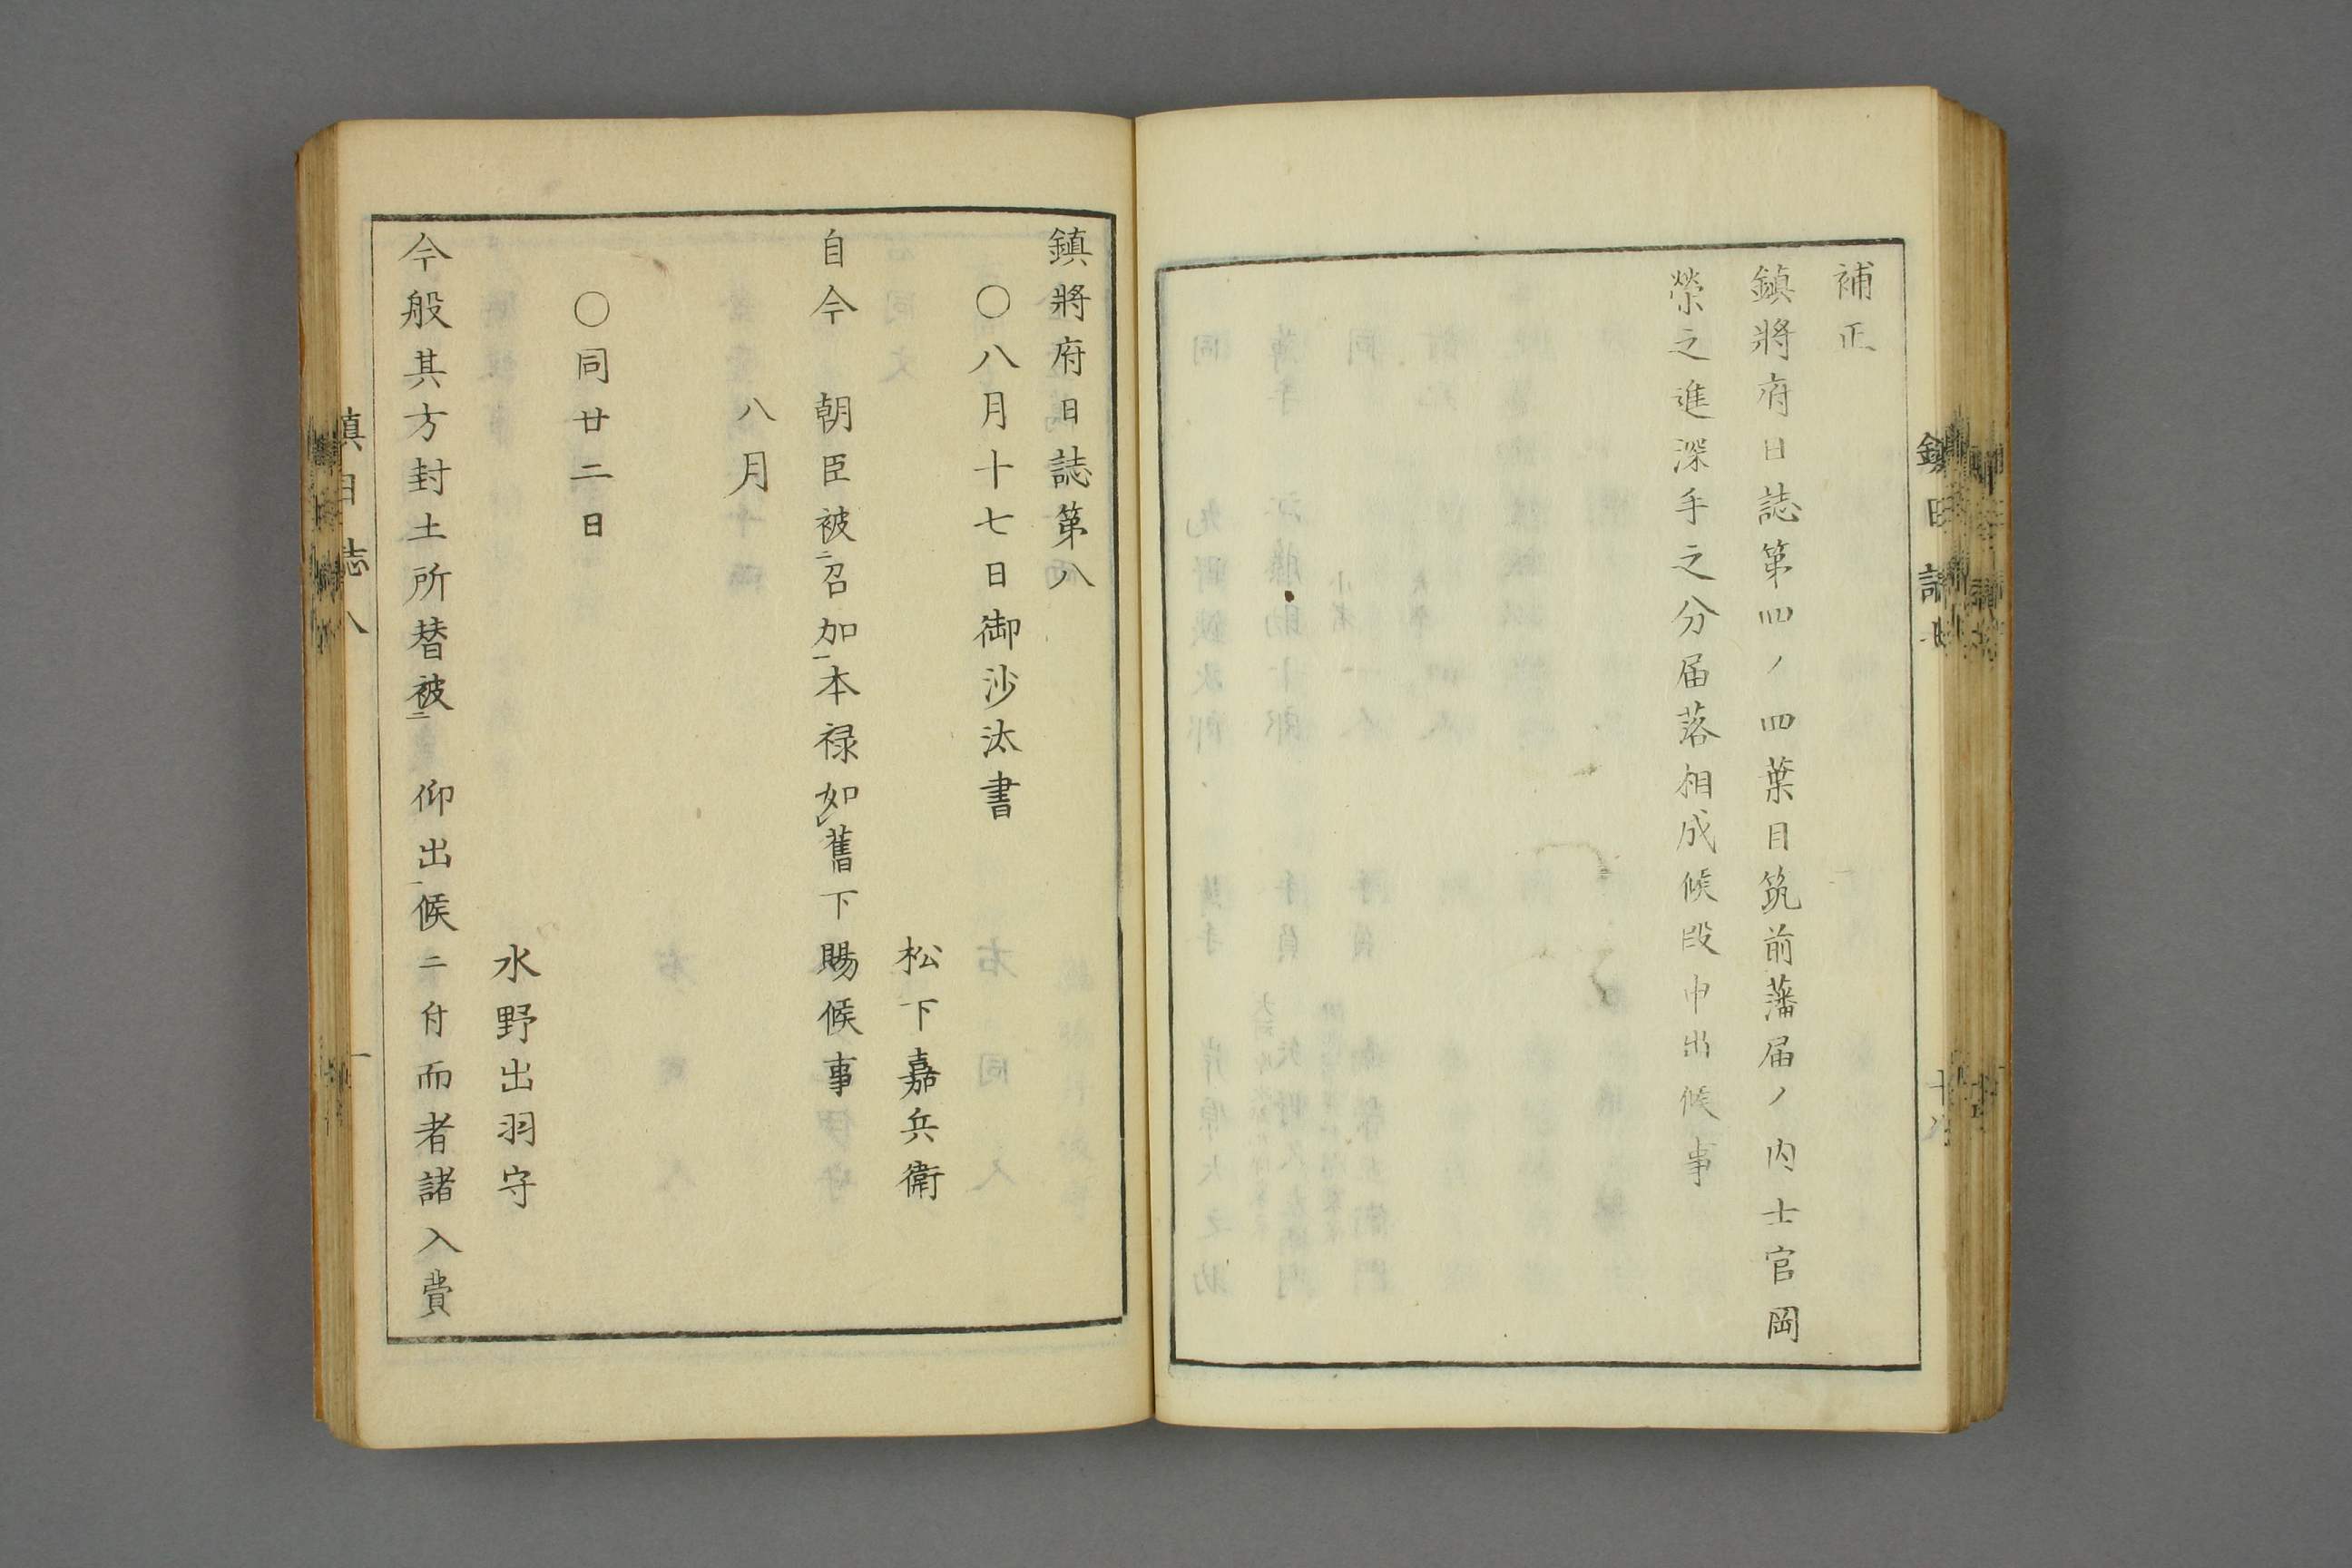 補正
鎮將府日誌第四ノ四葉目筑前藩届ノ内士官岡
榮之進深手之分届落相成候段申出候事
鎮將府日誌第八
〇八月十七日御沙汰書
松下嘉兵衛
自今　朝臣被二召加一本禄如レ舊下賜候事
八月
〇同廿二日
水野出羽守
今般其方封土所替被二　仰出一候ニ付而者諸入費
鎮日誌八
一